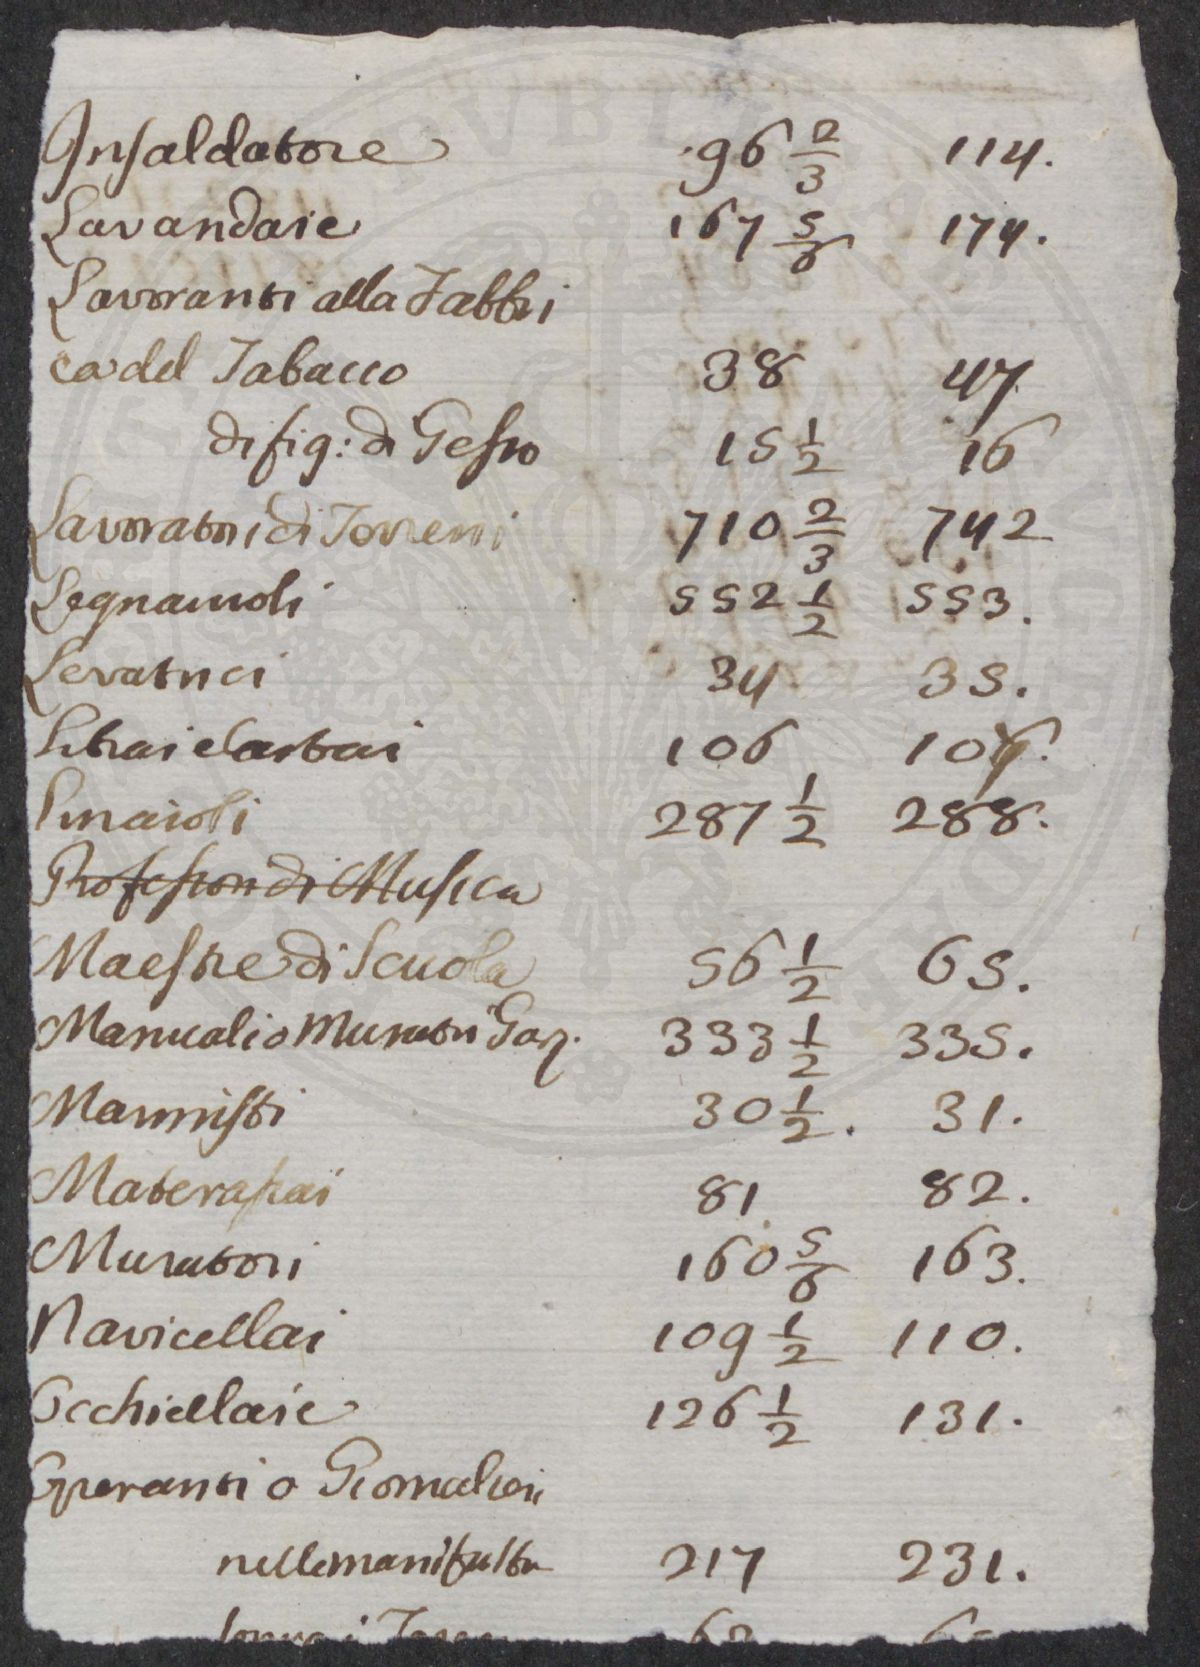 Insaldatore 96 2/3 114.
Lavandaie 167 5/6 174.
Lavoranti alla Fabbri
ca del Tabacco 38 47
di fig: di Gesso 15 1/2 16
Lavoratori di Terreni 710 2/3 742
Legnaiuoli 552 1/2 553.
Levatrici 34 35.
Librai e Cartai 106 107.
Linaioli 287 1/2 288.
Professori di Musica
Maestre di Scuola 56 1/2 65.
Manuali o Muratori Garz. 333 1/2 335.
Marmisti 30 1/2. 31.
Materassai 81 82.
Muratori 160 5/6 163.
Navicellai 109 1/2 110.
Occhiellaie 126 1/2 131.
Operanti o Giornalieri
nelle manifattu 217 231.